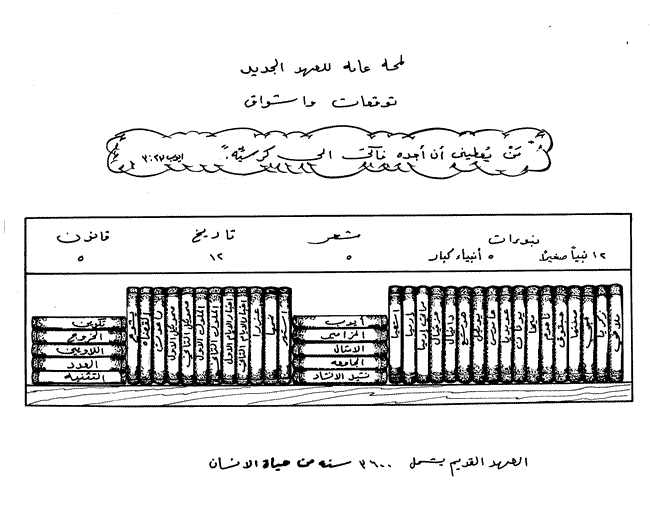 لمحة عامة للعهد الجديد
توقعات واشواق
"مَنْ يُعطيني أن أجده فآتي الى كرسيّه." ايوب ٣:٢٣
قانون
٥
تاريخ
١٢
شعر
٥
نبوءات
٥ أنبياء كبار
١٢ نبياً صغيراً
تكوين
الخروج
اللاويين
العدد
التثنية
يشوع
القضاة
راعوث
صموئيل الاول
صموئيل الثاني
الملوك الاول
الملوك الثاني
اخبار الايام الاول
اخبار الايام الثاني
عزرا
نحميا
استير
أيوب
المزامير
الامثال
الجامعة
نشيد الانشاد
اشعيا
ارميا
مراثي ارميا
حزقيال
دانيال
هوشع
يوئيل
عاموس
عوبديا
يونان
ميخا
ناحوم
حبقوق
صفنيا
حجي
زكريا
ملاخي
العهد القديم يشمل ٣٦٠٠ سنه من حياة الانسان